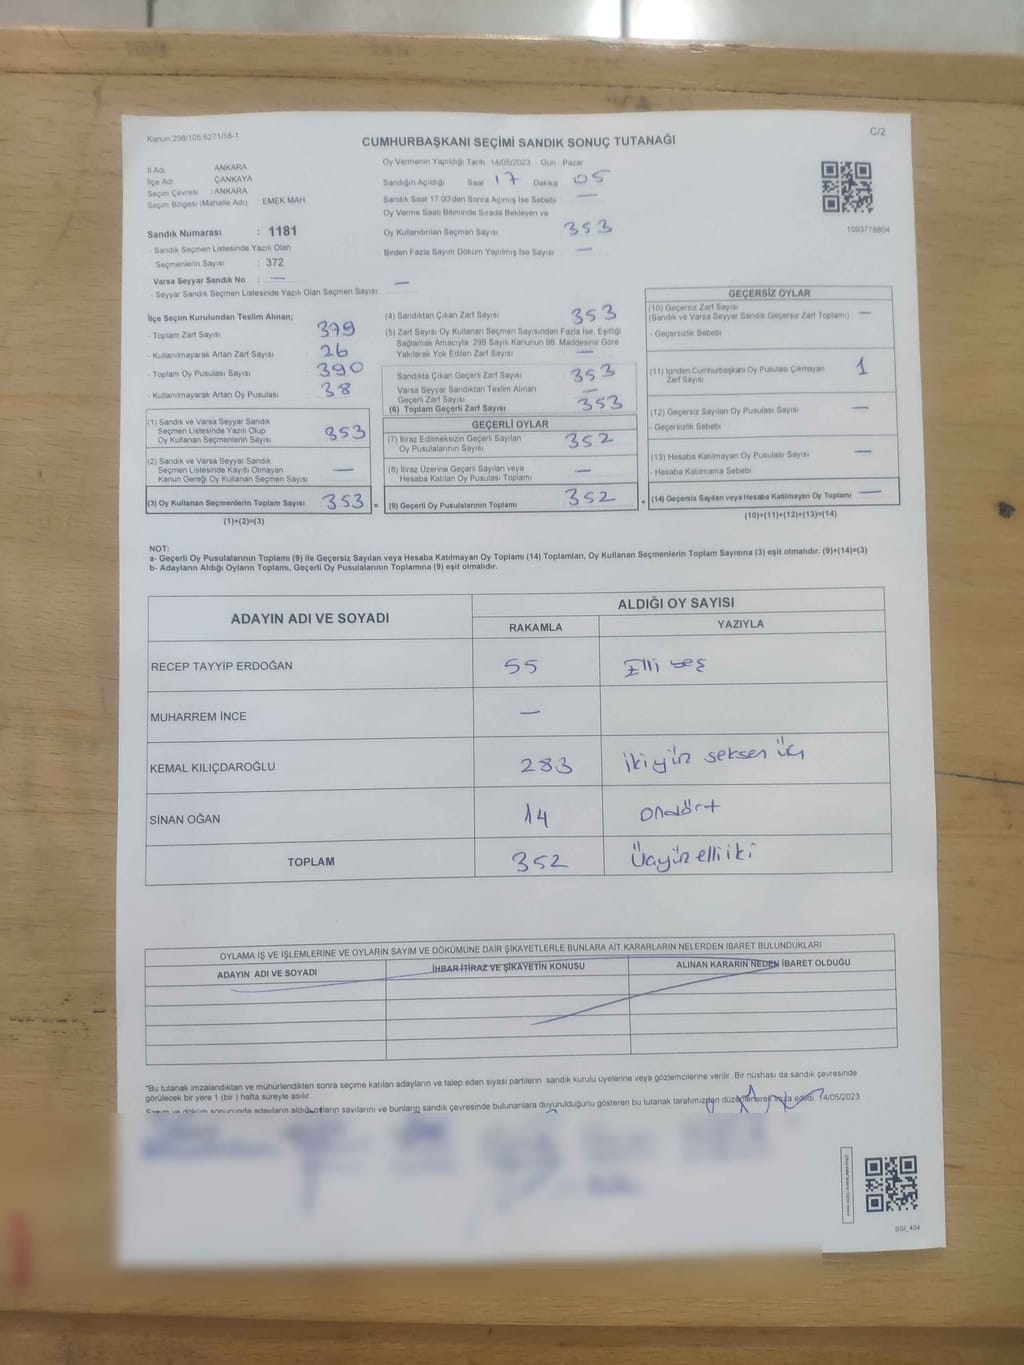 Kanun:298/105,6271/18-1
C/2
CUMHURBAŞKANI SEÇİMİ SANDIK SONUÇ TUTANAĞI
İl Adı ANKARA
İlçe Adı ÇANKAYA
Seçim Çevresi : ANKARA
Seçim Bölgesi (Mahalle Adı) EMEK MAH.
Sandık Numarası : 1181
- Sandık Seçmen Listesinde Yazılı Olan
Seçmenlerin Sayısı : 372
Varsa Seyyar Sandık No : —
- Seyyar Sandık Seçmen Listesinde Yazılı Olan Seçmen Sayısı —
Oy Vermenin Yapıldığı Tarih 14/05/2023 Gün Pazar
Sandığın Açıldığı Saat 17 Dakika 05
Sandık Saat 17.00'den Sonra Açılmış İse Sebebi —
Oy Verme Saati Bitiminde Sırada Bekleyen ve
Oy Kullandırılan Seçmen Sayısı 353
Birden Fazla Sayım Döküm Yapılmış İse Sayısı —
1093778804
İlçe Seçim Kurulundan Teslim Alınan;
- Toplam Zarf Sayısı 379
- Kullanılmayarak Artan Zarf Sayısı 26
- Toplam Oy Pusulası Sayısı 390
- Kullanılmayarak Artan Oy Pusulası 38
(1) Sandık ve Varsa Seyyar Sandık
Seçmen Listesinde Yazılı Olup
Oy Kullanan Seçmenlerin Sayısı 353
(2) Sandık ve Varsa Seyyar Sandık
Seçmen Listesinde Kayıtlı Olmayan
Kanun Gereği Oy Kullanan Seçmen Sayısı —
(3) Oy Kullanan Seçmenlerin Toplam Sayısı 353 =
(1)+(2)=(3)
(4) Sandıktan Çıkan Zarf Sayısı 353
(5) Zarf Sayısı Oy Kullanan Seçmen Sayısından Fazla İse, Eşitliği
Sağlamak Amacıyla, 298 Sayılı Kanunun 98. Maddesine Göre
Yakılarak Yok Edilen Zarf Sayısı —
Sandıkta Çıkan Geçerli Zarf Sayısı 353
Varsa Seyyar Sandıktan Teslim Alınan
Geçerli Zarf Sayısı —
(6) Toplam Geçerli Zarf Sayısı 353
GEÇERLİ OYLAR
(7) İtiraz Edilmeksizin Geçerli Sayılan
Oy Pusulalarının Sayısı 352
(8) İtiraz Üzerine Geçerli Sayılan veya
Hesaba Katılan Oy Pusulası Toplamı —
(9) Geçerli Oy Pusulalarının Toplamı 352 +
GEÇERSİZ OYLAR
(10) Geçersiz Zarf Sayısı
(Sandık ve Varsa Seyyar Sandık Geçersiz Zarf Toplamı) —
- Geçersizlik Sebebi
(11) İçinden Cumhurbaşkanı Oy Pusulası Çıkmayan
Zarf Sayısı 1
(12) Geçersiz Sayılan Oy Pusulası Sayısı —
- Geçersizlik Sebebi
(13) Hesaba Katılmayan Oy Pusulası Sayısı —
- Hesaba Katılmama Sebebi
(14) Geçersiz Sayılan veya Hesaba Katılmayan Oy Toplamı —
(10)+(11)+(12)+(13)=(14)
NOT:
a- Geçerli Oy Pusulalarının Toplamı (9) ile Geçersiz Sayılan veya Hesaba Katılmayan Oy Toplamı (14) Toplamları, Oy Kullanan Seçmenlerin Toplam Sayısına (3) eşit olmalıdır. (9)+(14)=(3)
b- Adayların Aldığı Oyların Toplamı, Geçerli Oy Pusulalarının Toplamına (9) eşit olmalıdır.
ADAYIN ADI VE SOYADI ALDIĞI OY SAYISI
RAKAMLA YAZIYLA
RECEP TAYYİP ERDOĞAN 55 Elli beş
MUHARREM İNCE —
KEMAL KILIÇDAROĞLU 283 ikiyüz seksen üç
SİNAN OĞAN 14 ondört
TOPLAM 352 Üçyüz elli iki
OYLAMA İŞ VE İŞLEMLERİNE VE OYLARIN SAYIM VE DÖKÜMÜNE DAİR ŞİKAYETLERLE BUNLARA AİT KARARLARIN NELERDEN İBARET BULUNDUKLARI
ADAYIN ADI VE SOYADI İHBAR İTİRAZ VE ŞİKAYETİN KONUSU ALINAN KARARIN NEDEN İBARET OLDUĞU
*Bu tutanak imzalandıktan ve mühürlendikten sonra seçime katılan adayların ve talep eden siyasi partilerin sandık kurulu üyelerine veya gözlemcilerine verilir. Bir nüshası da sandık çevresinde
görülecek bir yere 1 (bir ) hafta süreyle asılır.
Sayım ve döküm sonucunda adayların aldığı oyların sayılarını ve bunların sandık çevresinde bulunanlara duyurulduğunu gösteren bu tutanak tarafımızdan düzenlenerek imza edildi. 14/05/2023
SSI_404